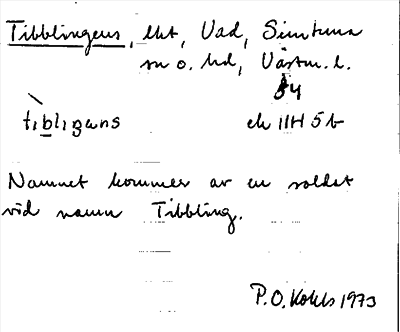 Tibblingens, lht, Vad, Simtuna
sn o. hd, Västm. l.
84
tibligans ek 11H 5b
Namnet kommer av en soldat
vid namn Tibbling.
P.O. Kohls 1973